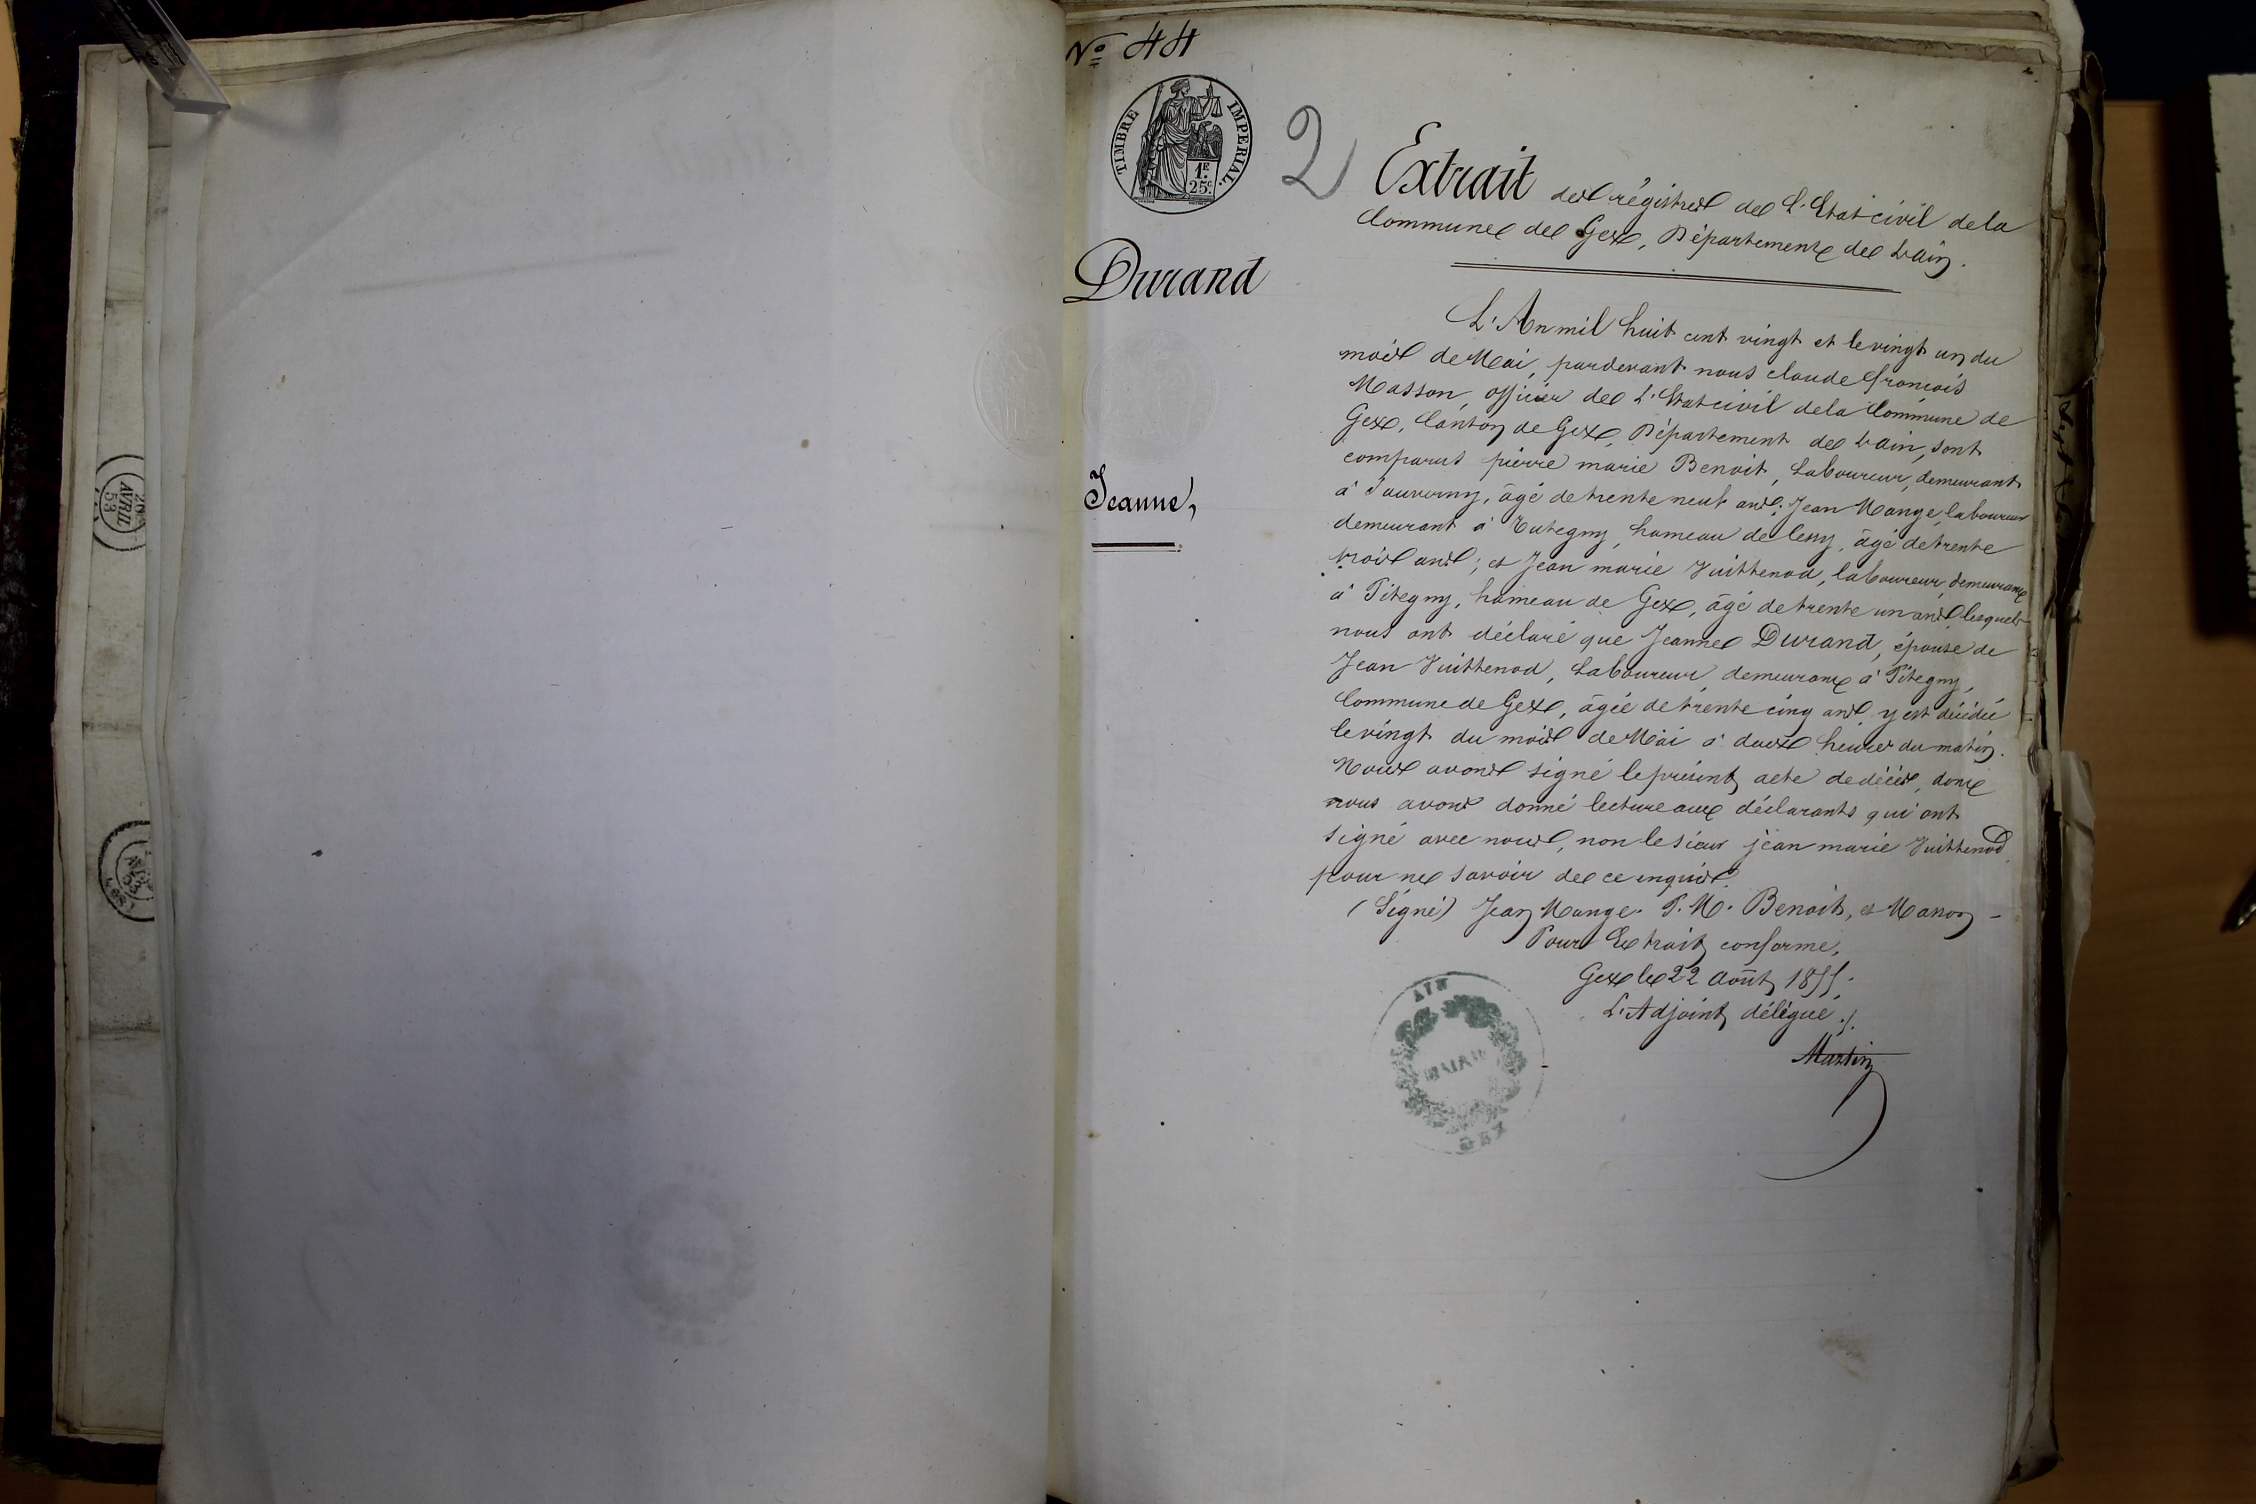 20
AVRIL
53
No 44
TIMBRE IMPERIAL.
1F.
25c.
2
Extrait des régistres de l'Etat civil de la
Commune de Gex, Département de l'ain.
Durand
Jeanne,
L'An mil huit cent vingt et le vingt un du
mois de Mai, pardevant nous claude françois
Masson, officier de l'Etat civil de la Commune de
Gex, Canton de Gex, Département de l'ain, sont
comparus pierre marie Benoit, Laboureur, demeurant
à Sauverny, âgé de trente neuf ans; Jean Mange, laboureur
demeurant à Tutegny, hameau de Cessy, âgé de trente
trois ans; et Jean marie Vuittenod, laboureur, demeurant
à Pitegny, hameau de Gex, âgé de trente un ans lesquels
nous ont déclaré que Jeanne Durand, épouse de
Jean Vuittenod, Laboureur demeurant à Pitegny,
Commune de Gex, âgée de trente cinq ans, y est décédée
le vingt du mois de Mai à deux heures du matin.
Nous avons signé le présent acte de décès, dont
nous avons donné lecture aux déclarants qui ont
signé avec nous, non le sieur jean marie Vuittenod,
pour ne savoir de ce enquis.
(Signé) Jean Mange. P. M. Benoit, et Masson -
Pour Extrait conforme,
Gex le 22 août 1855.
L'Adjoint délégué.
Martin
AIN
MAIRIE
GEX